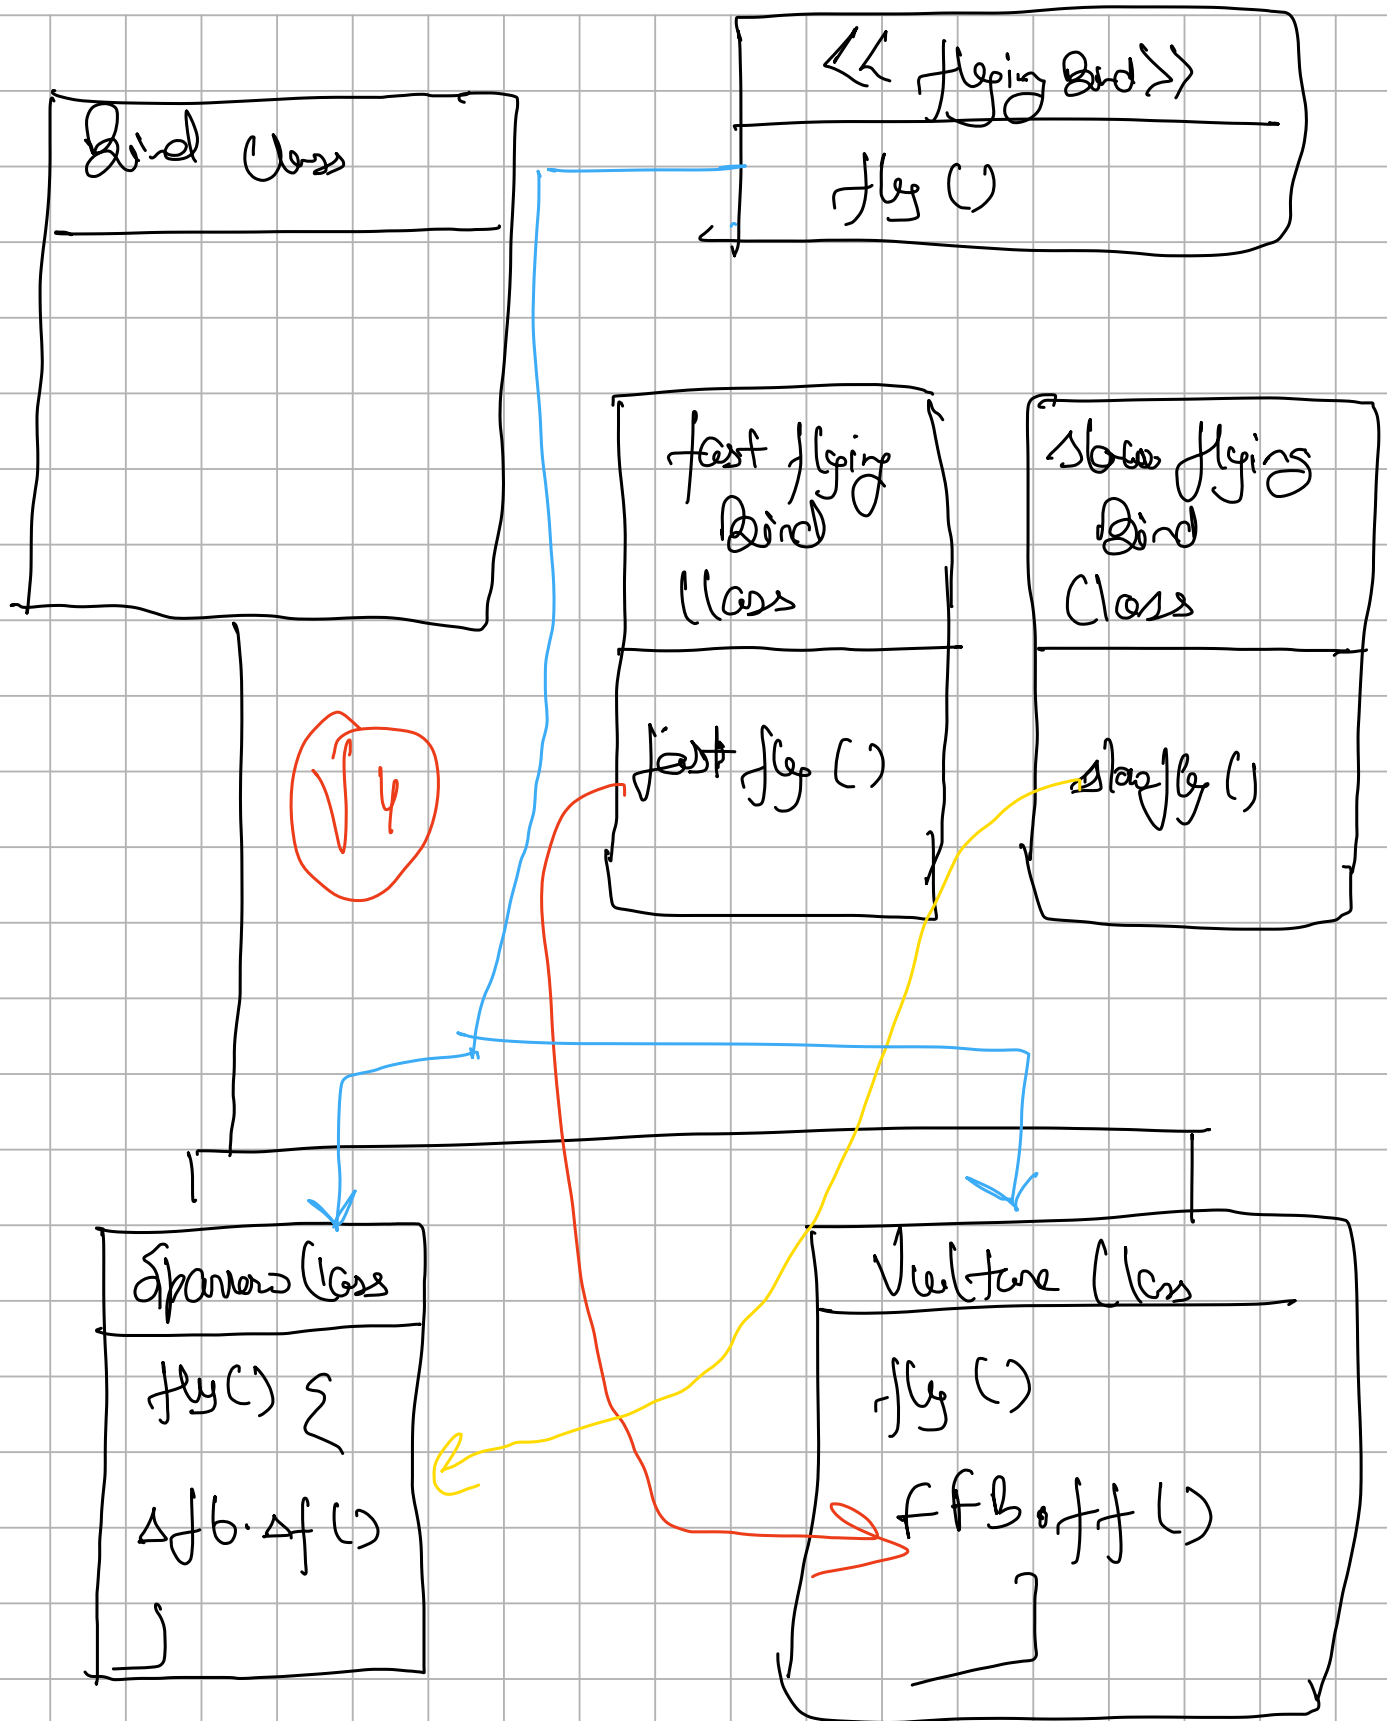 << flying Bird >>
fly ()
Bird Class
fast flying
Bird
Class
fast fly ()
slow flying
Bird
Class
slow fly ()
V4
Sparrow Class
fly() {
sfb.sf()
}
Vulture Class
fly ()
FFB.ff ()
}